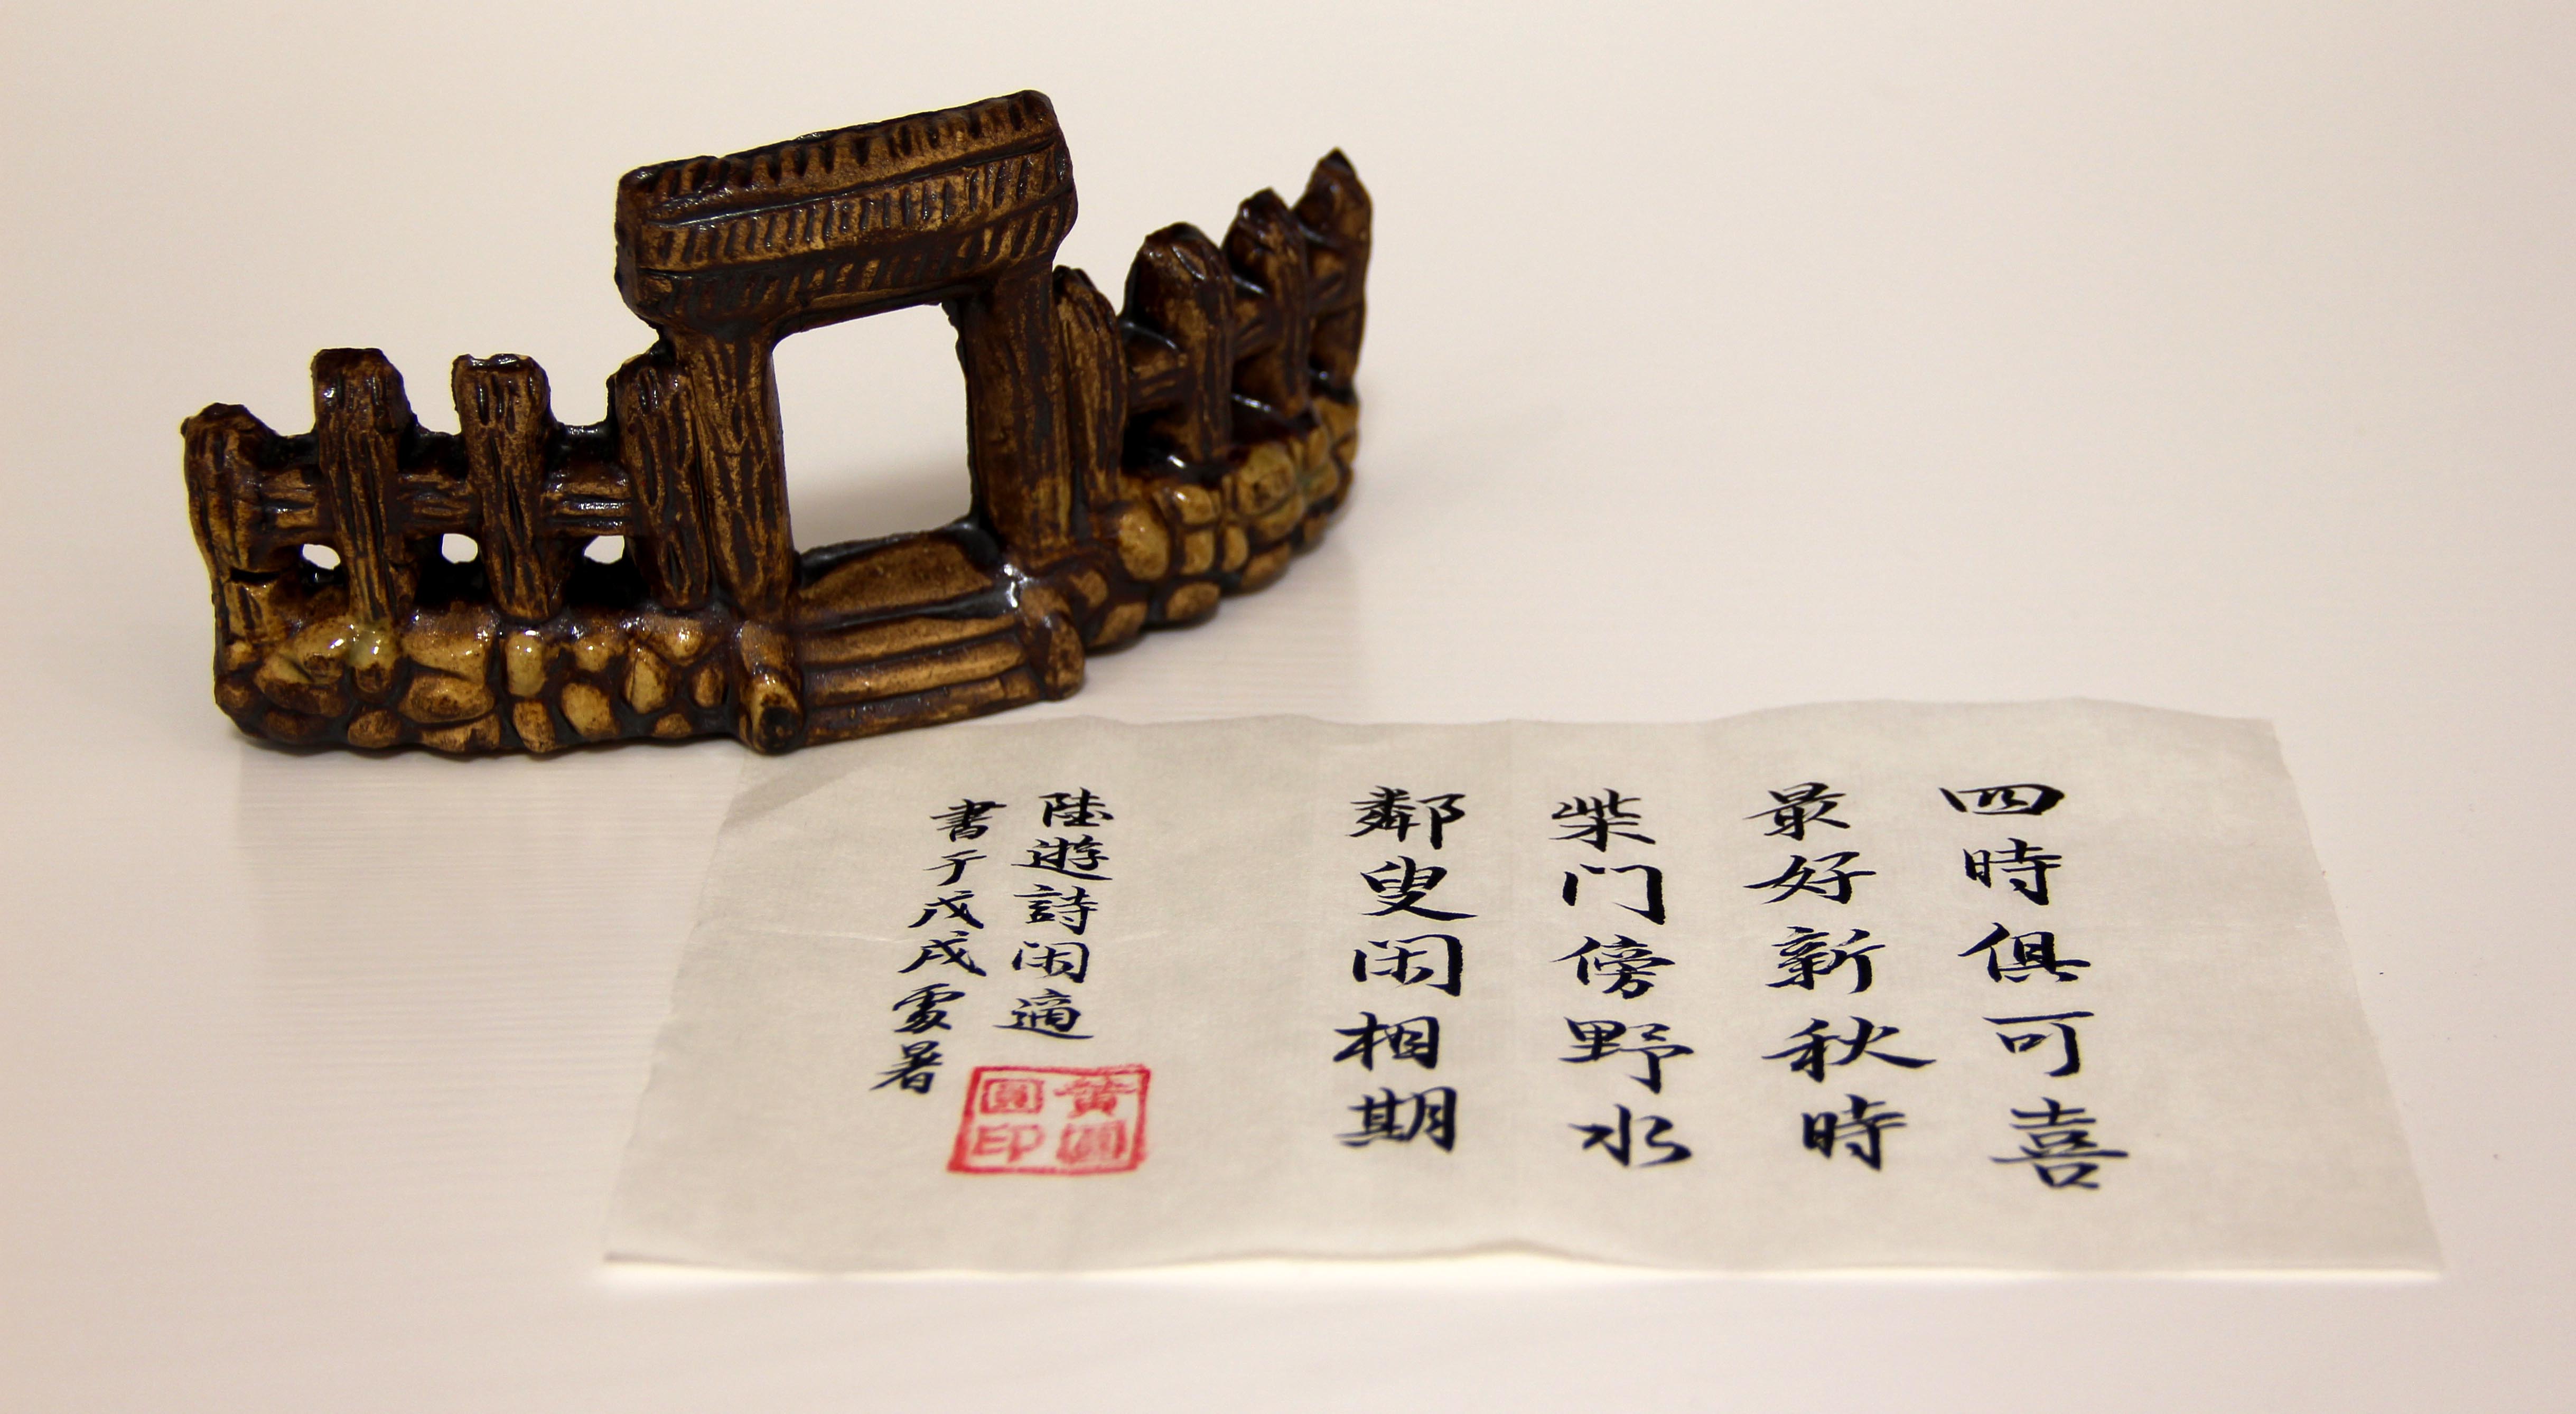 四時俱可喜
最好新秋時
柴门傍野水
鄰叟闲相期
陸遊詩闲適
書于戊戌處暑
黄圓
圓印